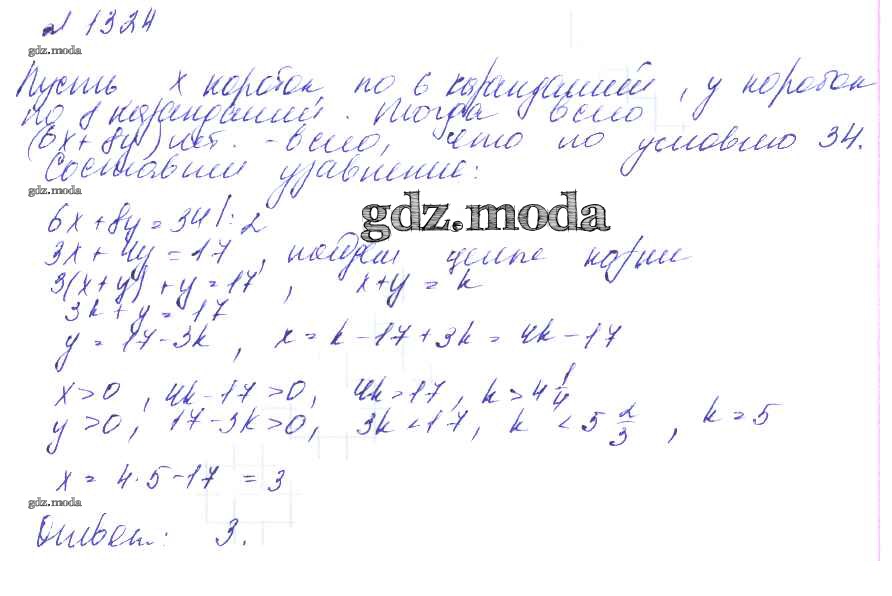 № 1324
gdz.moda
Пусть x коробок по 6 карандашей, y коробок
по 8 карандашей. Тогда всего
(6x + 8y) - всего, что по условию 34.
Составим уравнение:
gdz.moda
6x + 8y = 34 | : 2
gdz.moda
3x + 4y = 17, найдем целые корни
3(x + y) + y = 17, x + y = k
3k + y = 17
y = 17 - 3k, x = k - 17 + 3k = 4k - 17
x > 0, 4k - 17 > 0, 4k > 17, k > 4 1/4
y > 0, 17 - 3k > 0, 3k < 17, k < 5 2/3, k = 5
x = 4 · 5 - 17 = 3
gdz.moda
Ответ: 3.